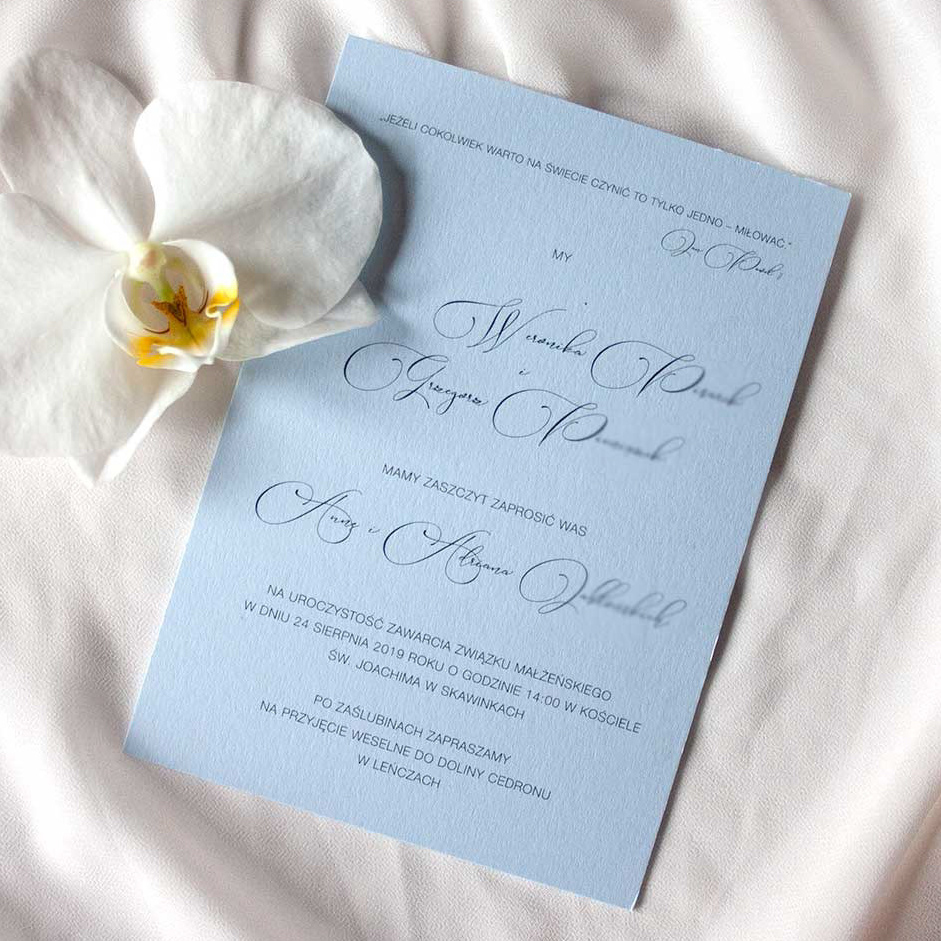 „JEŻELI COKOLWIEK WARTO NA ŚWIECIE CZYNIĆ TO TYLKO JEDNO – MIŁOWAĆ.”
Jan
MY
Weronika
i
Grzegorz
MAMY ZASZCZYT ZAPROSIĆ WAS
Annę i Adriana
NA UROCZYSTOŚĆ ZAWARCIA ZWIĄZKU MAŁŻEŃSKIEGO
W DNIU 24 SIERPNIA 2019 ROKU O GODZINIE 14:00 W KOŚCIELE
ŚW. JOACHIMA W SKAWINKACH
PO ZAŚLUBINACH ZAPRASZAMY
NA PRZYJĘCIE WESELNE DO DOLINY CEDRONU
W LEŃCZACH